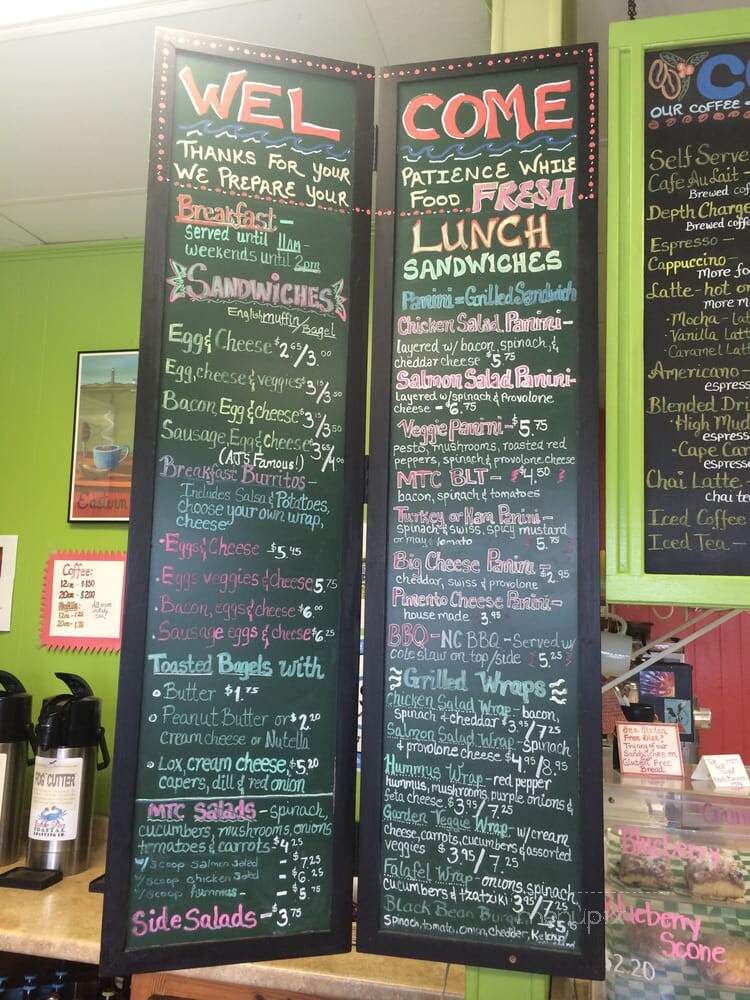 WEL
THANKS FOR YOUR
WE PREPARE YOUR
Breakfast -
served until 11am -
weekends until 2pm
SANDWICHES
English muffin/Bagel
Egg & Cheese $2.65/3.00
Egg, cheese & veggies
Bacon, Egg & cheese $3.15/3.50
Sausage, Egg & cheese $3.65/4.00
(AJ'S Famous!)
Breakfast Burritos -
Includes Salsa & Potatoes,
choose your own wrap,
cheese
• Eggs & Cheese $5.45
• Eggs veggies & cheese 5.75
• Bacon, eggs & cheese $6.00
• Sausage eggs & cheese $6.25
Toasted Bagels with
Butter $1.75
Peanut Butter or $2.20
cream cheese or Nutella
Lox, cream cheese, $5.20
capers, dill & red onion
MTC Salads - spinach,
cucumbers, mushrooms, onions
tomatoes & carrots $4.25
w/scoop Salmon Salad - $7.25
w/scoop chicken salad - $6.25
w/scoop hummus - $5.75
Side Salads - $3.75
COME
PATIENCE WHILE
FOOD FRESH
LUNCH
SANDWICHES
Panini = Grilled Sandwich
Chicken Salad Panini -
layered w/ bacon, spinach, &
cheddar cheese $5.75
Salmon Salad Panini -
layered w/spinach & provolone
cheese - $6.75
Veggie Panini - $5.75
pesto, mushrooms, roasted red
peppers, spinach & provolone cheese
MTC BLT - $4.50
bacon, spinach & tomatoes
Turkey or Ham Panini -
spinach & swiss, spicy mustard
or mayo, tomato 5.75
Big Cheese Panini - $2.95
cheddar, swiss & provolone
Pimento Cheese Panini -
house made 3.95
BBQ - NC BBQ - Served w/
coleslaw on top/side 5.25
Grilled Wraps
Chicken Salad Wrap - bacon,
spinach & cheddar $3.95/7.25
Salmon Salad Wrap - spinach
& provolone cheese $4.95/8.95
Hummus Wrap - red pepper
hummus, mushrooms, purple onions &
feta cheese $3.95/7.25
Garden Veggie Wrap - w/cream
cheese, carrots, cucumbers & assorted
veggies $3.95/7.25
Falafel Wrap - onions, spinach
cucumbers & tzatziki 3.95/7.25
Black Bean
spinach, tomato, onion, cheddar, Ketchup
OUR COFFEE
Self Serve
Cafe Au Lait -
Brewed cof
Depth Charge
Brewed coffe
Espresso -
Cappuccino -
More fo
Latte - hot or
more m
• Mocha - lat
• Vanilla Latt
• Caramel Latt
Americano -
espress
Blended Dri
• High Mud
espress
• Cape Car
espress
Chai Latte -
chai te
Iced Coffee
Iced Tea -
Eastern
Coffee:
12oz - $1.50
20oz - $2.00
FOG CUTTER
COASTAL
Gluten
Free Diet?
Try any of our
Sandwiches on
Gluten Free
Bread
Blueberry
Blueberry
Scone
$2.20